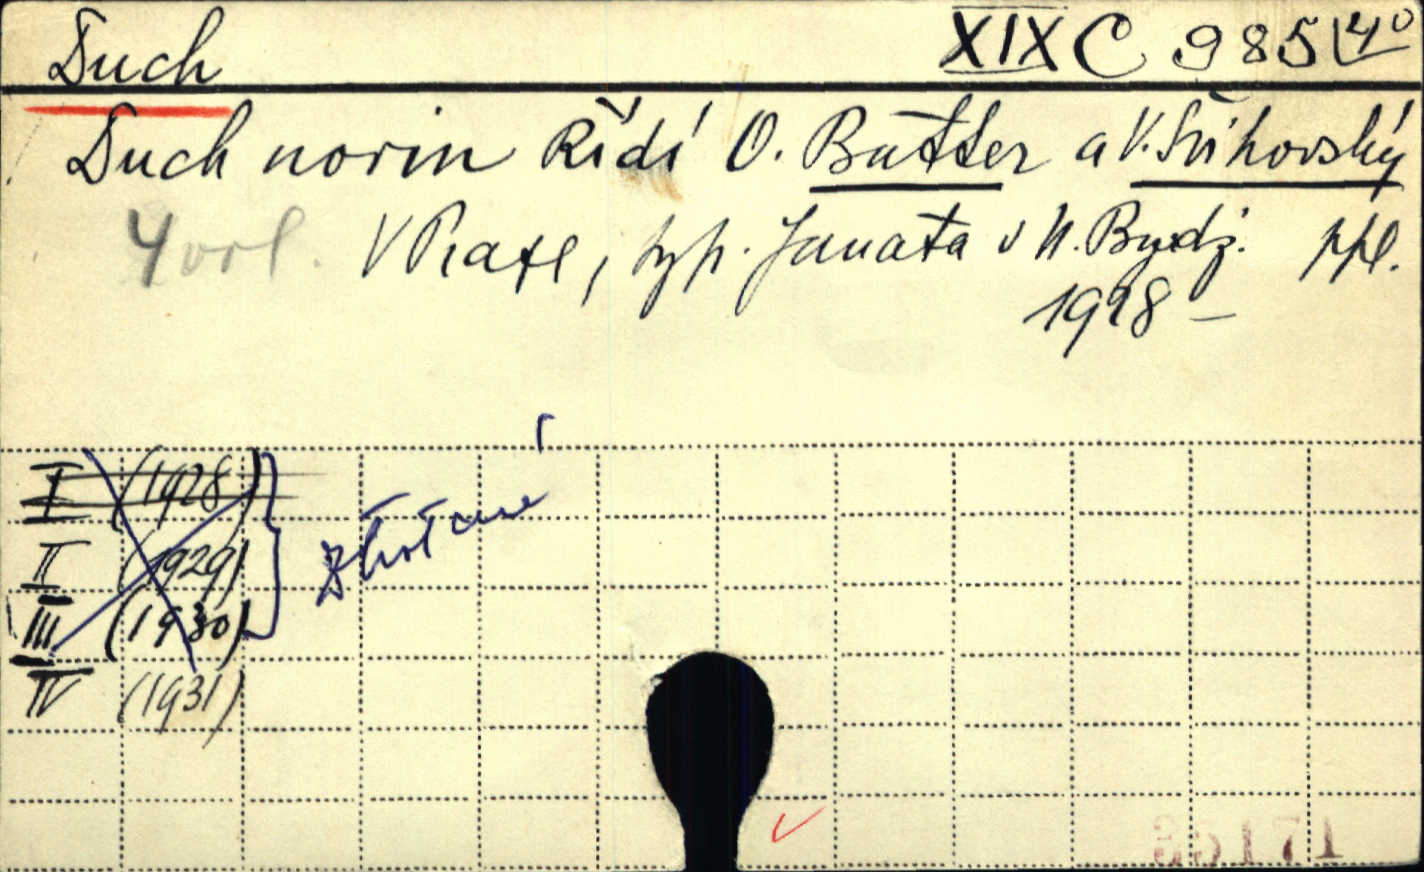 Duch XIX C 985 4°
Duch novin Řídí O. Butter a V. Šuhovský
4 vol. V Praze, typ. Janata v N. Bydž. ppl.
1928 –
I (1928)
II (1929)
III (1930)
IV (1931)
ztracené